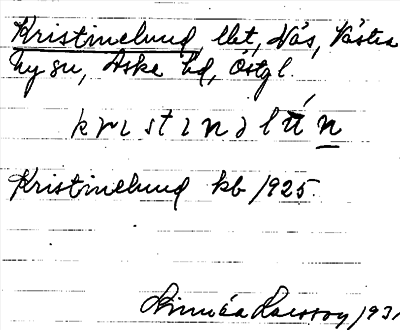 Kristinelund, lht, Nås, Västra
Ny sn, Aske hd, Östgl.
kristinəlún
Kristinelund kb 1925.
Linnéa Larsson 193